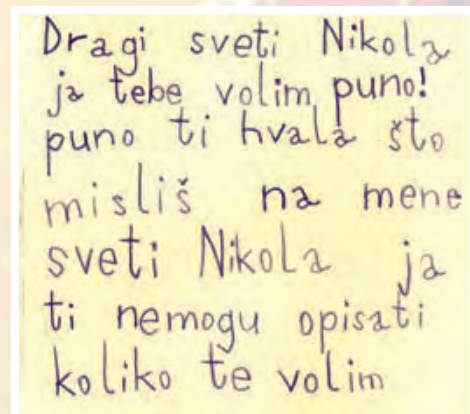 Dragi sveti Nikola
ja tebe volim puno!
puno ti hvala što
misliš na mene
sveti Nikola ja
ti nemogu opisati
koliko te volim